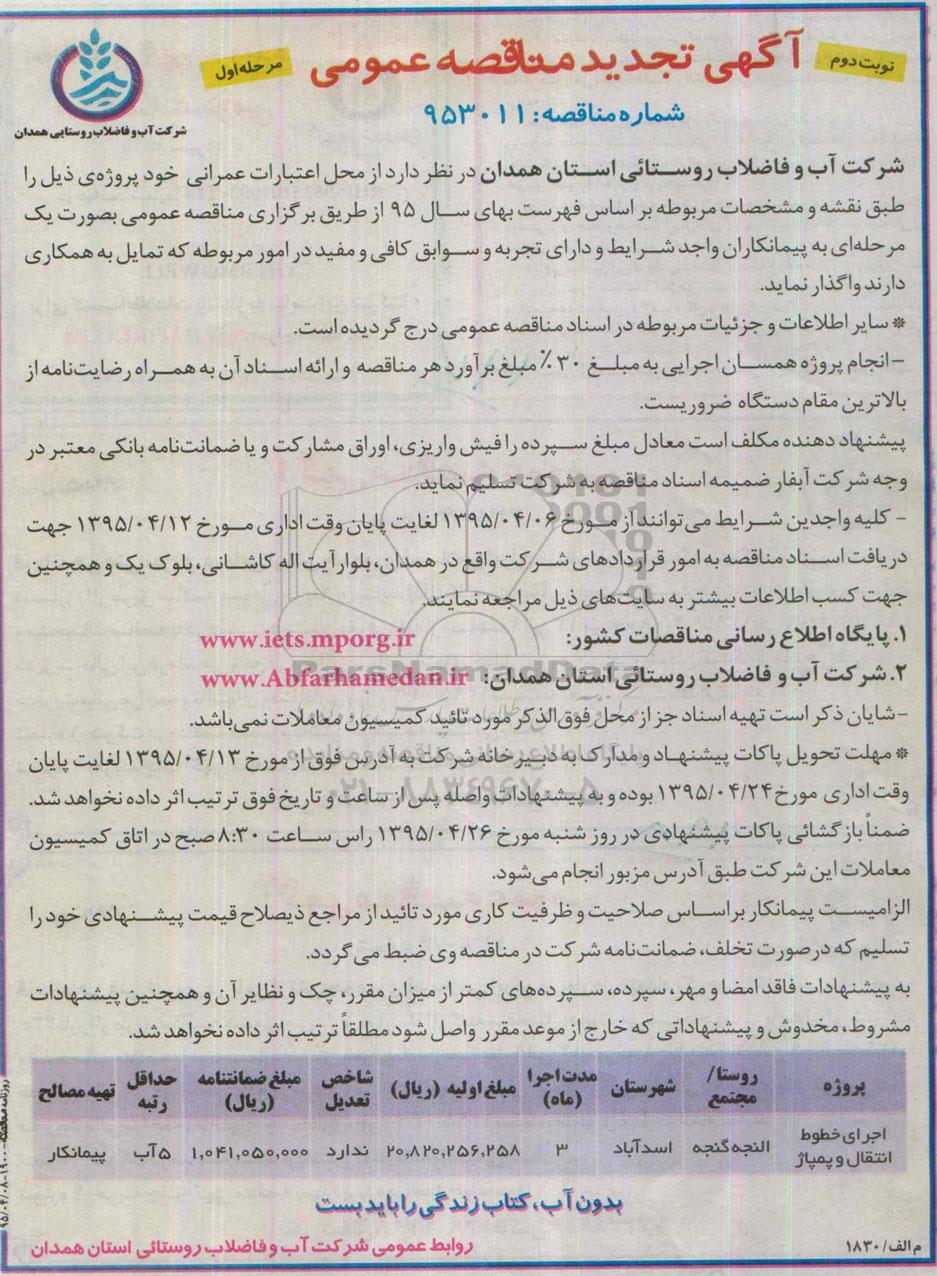 نوبت دوم
آگهی تجدید مناقصه عمومی
مرحله اول
شماره مناقصه: ۹۵۳۰۱۱
شرکت آب و فاضلاب روستایی همدان
شرکت آب و فاضلاب روستائی استان همدان در نظر دارد از محل اعتبارات عمرانی خود پروژه‌ی ذیل را
طبق نقشه و مشخصات مربوطه بر اساس فهرست بهای سال ۹۵ از طریق برگزاری مناقصه عمومی بصورت یک
مرحله‌ای به پیمانکاران واجد شرایط و دارای تجربه و سوابق کافی و مفید در امور مربوطه که تمایل به همکاری
دارند واگذار نماید.
* سایر اطلاعات و جزئیات مربوطه در اسناد مناقصه عمومی درج گردیده است.
- انجام پروژه همسان اجرایی به مبلغ ۳۰٪ مبلغ برآورد هر مناقصه و ارائه اسناد آن به همراه رضایت‌نامه از
بالاترین مقام دستگاه ضروریست.
پیشنهاد دهنده مکلف است معادل مبلغ سپرده را فیش واریزی، اوراق مشارکت و یا ضمانت‌نامه بانکی معتبر در
وجه شرکت آبفار ضمیمه اسناد مناقصه به شرکت تسلیم نماید.
- کلیه واجدین شرایط می‌توانند از مورخ ۱۳۹۵/۰۴/۰۶ لغایت پایان وقت اداری مورخ ۱۳۹۵/۰۴/۱۲ جهت
دریافت اسناد مناقصه به امور قراردادهای شرکت واقع در همدان، بلوار آیت اله کاشانی، بلوک یک و همچنین
جهت کسب اطلاعات بیشتر به سایت‌های ذیل مراجعه نمایند.
۱. پایگاه اطلاع رسانی مناقصات کشور: www.iets.mporg.ir
ParsNamadData
۲. شرکت آب و فاضلاب روستائی استان همدان: www.Abfarhamedan.ir
- شایان ذکر است تهیه اسناد جز از محل فوق‌الذکر مورد تائید کمیسیون معاملات نمی‌باشد.
* مهلت تحویل پاکات پیشنهاد و مدارک به دبیرخانه شرکت به آدرس فوق از مورخ ۱۳۹۵/۰۴/۱۳ لغایت پایان
وقت اداری مورخ ۱۳۹۵/۰۴/۲۴ بوده و به پیشنهادات واصله پس از ساعت و تاریخ فوق ترتیب اثر داده نخواهد شد.
۰۲۱-۸۸۳۴۹۶۷۰-۵
ضمناً بازگشائی پاکات پیشنهادی در روز شنبه مورخ ۱۳۹۵/۰۴/۲۶ راس ساعت ۸:۳۰ صبح در اتاق کمیسیون
معاملات این شرکت طبق آدرس مزبور انجام می‌شود.
الزامیست پیمانکار براساس صلاحیت و ظرفیت کاری مورد تائید از مراجع ذیصلاح قیمت پیشنهادی خود را
تسلیم که درصورت تخلف، ضمانت‌نامه شرکت در مناقصه وی ضبط می‌گردد.
به پیشنهادات فاقد امضا و مهر، سپرده، سپرده‌های کمتر از میزان مقرر، چک و نظایر آن و همچنین پیشنهادات
مشروط، مخدوش و پیشنهاداتی که خارج از موعد مقرر واصل شود مطلقاً ترتیب اثر داده نخواهد شد.
پروژه | روستا/مجتمع | شهرستان | مدت اجرا (ماه) | مبلغ اولیه (ریال) | شاخص تعدیل | مبلغ ضمانتنامه (ریال) | حداقل رتبه | تهیه مصالح
اجرای خطوط انتقال و پمپاژ | النجه گنجه | اسدآباد | ۳ | ۲۰,۸۲۰,۲۵۶,۲۵۸ | ندارد | ۱,۰۴۱,۰۵۰,۰۰۰ | ۵ آب | پیمانکار
بدون آب، کتاب زندگی را باید بست
م الف/۱۸۳۰
روابط عمومی شرکت آب و فاضلاب روستائی استان همدان